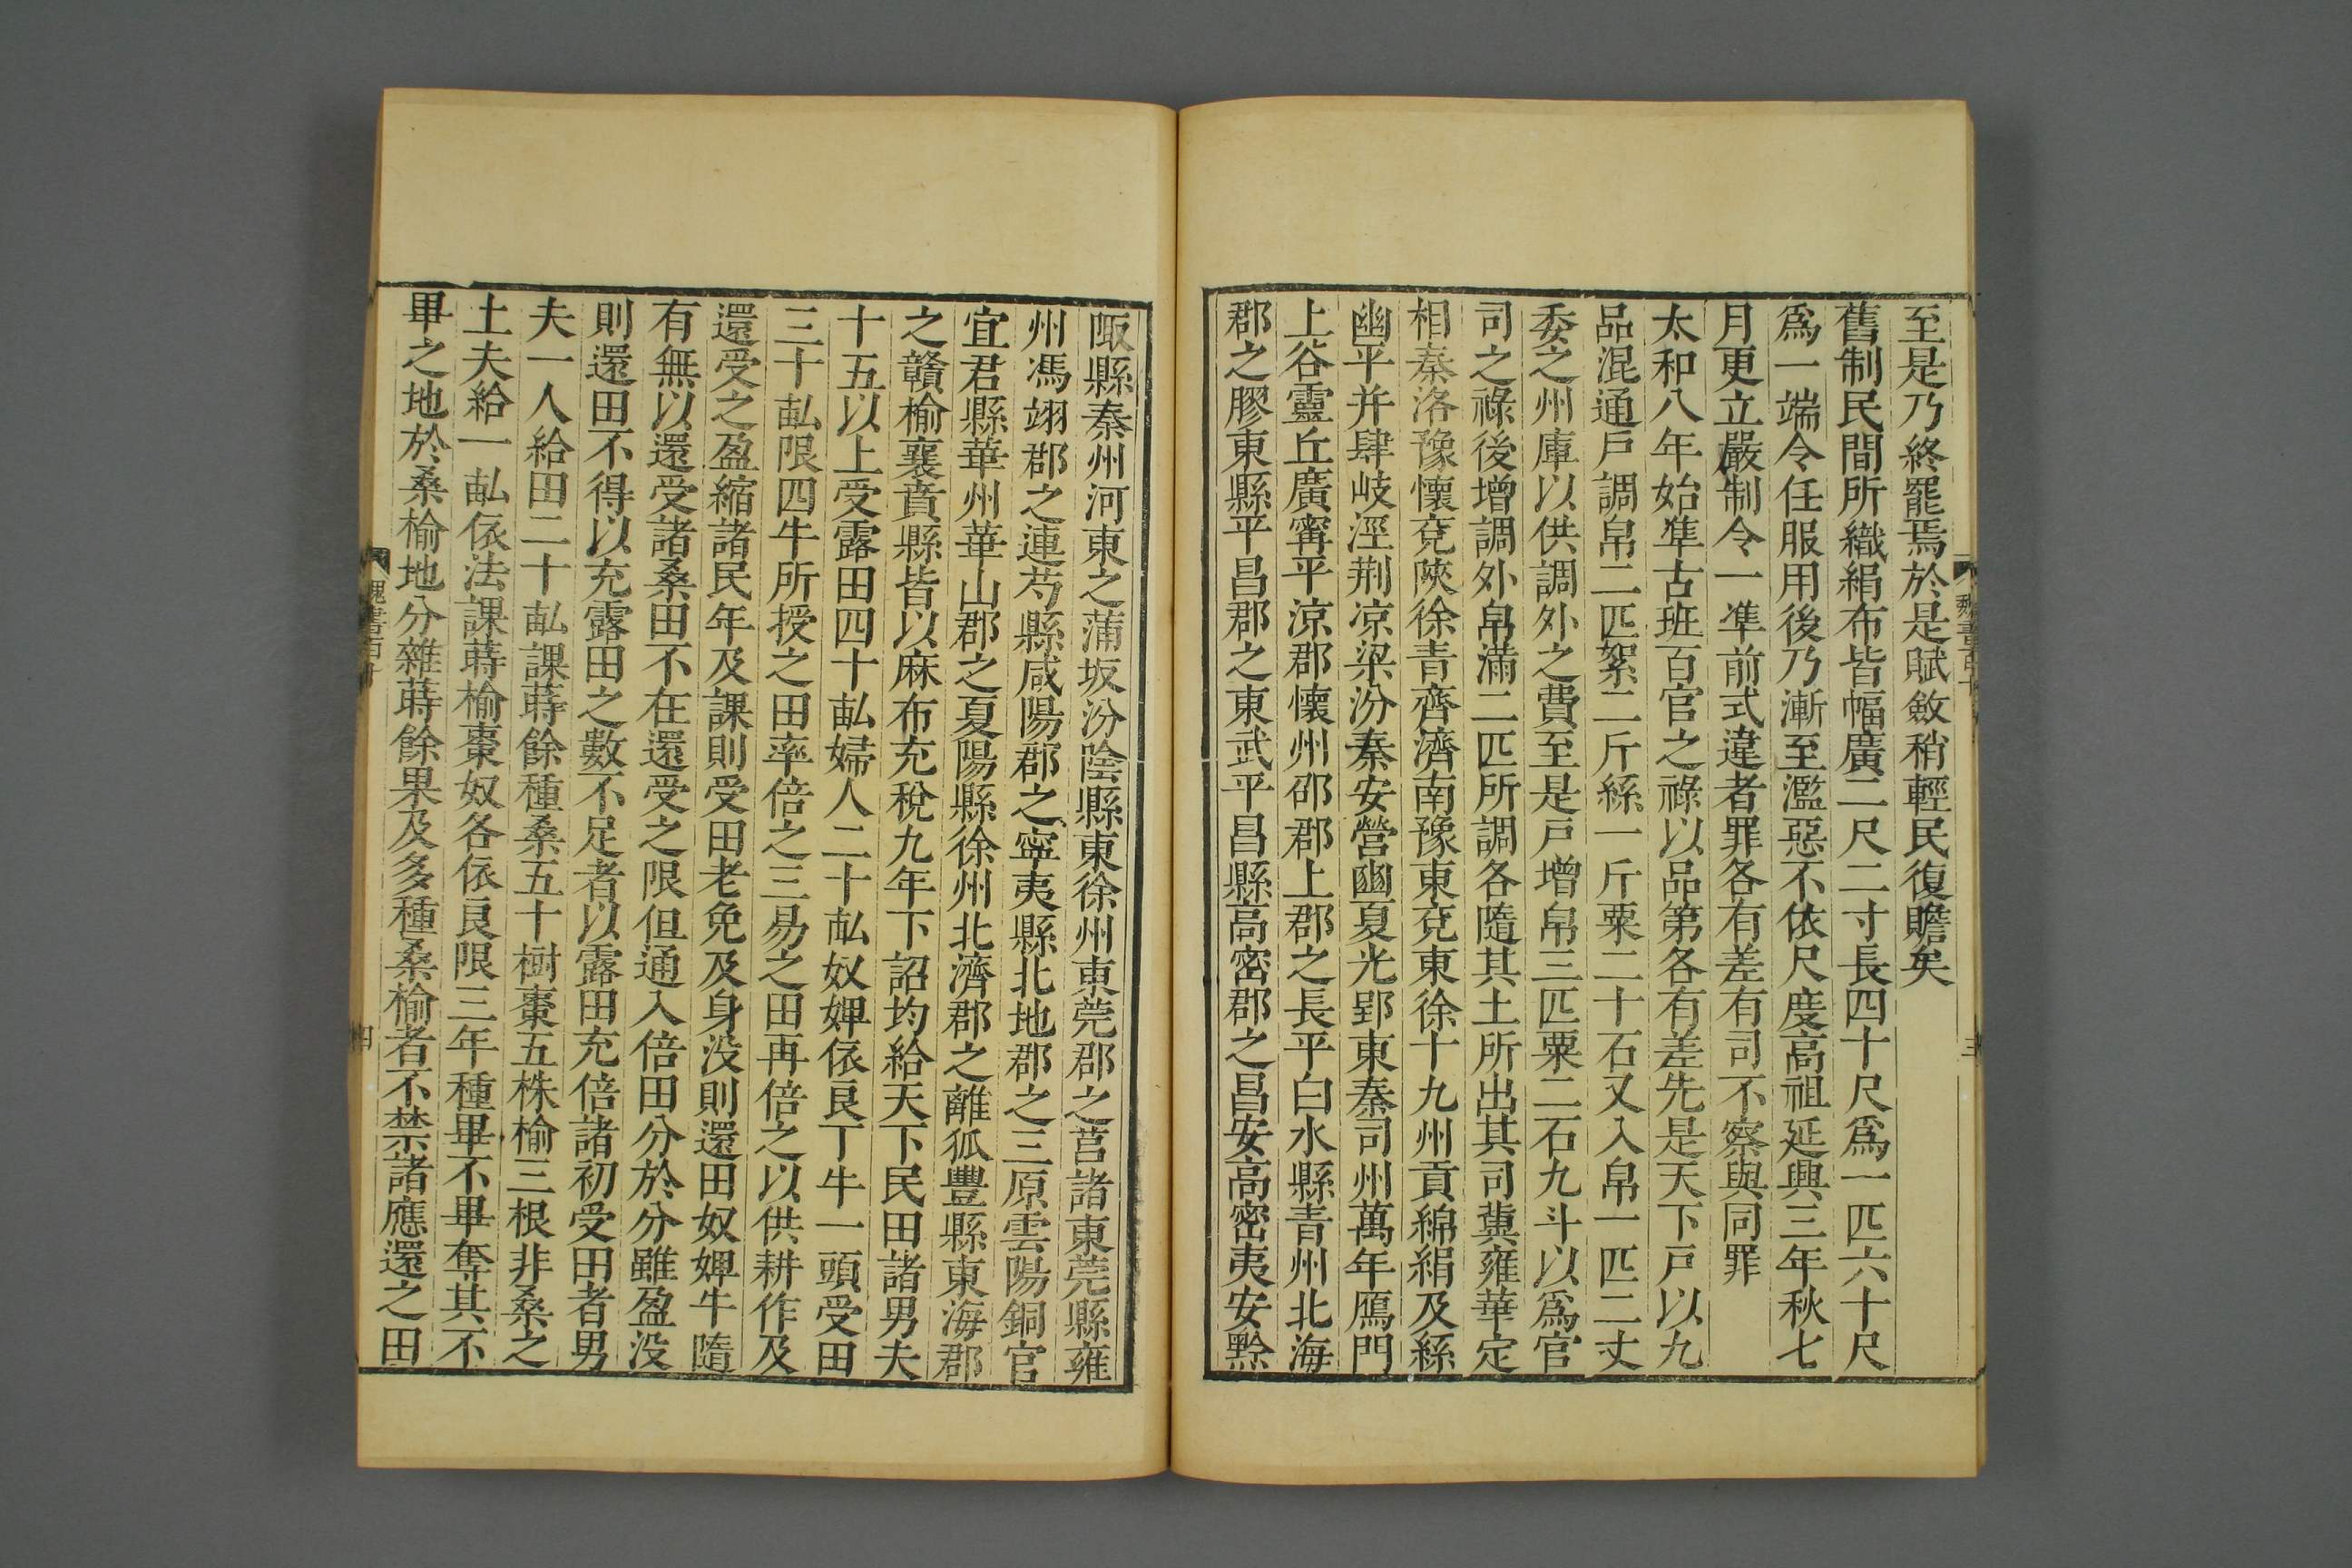 至是乃終罷焉於是賦斂稍輕民復贍矣
舊制民間所織絹布皆幅廣二尺二寸長四十尺爲一匹六十尺
爲一端令任服用後乃漸至濫惡不依尺度高祖延興三年秋七
月更立嚴制令一準前式違者罪各有差有司不察與同罪
太和八年始準古班百官之祿以品第各有差先是天下戶以九
品混通戶調帛二匹絮二斤絲一斤粟二十石又入帛一匹二丈
委之州庫以供調外之費至是戶增帛三匹粟二石九斗以爲官
司之祿後增調外帛滿二匹所調各隨其土所出其司冀雍華定
相秦洛豫懷兗陝徐青齊濟南豫東兗東徐十九州貢綿絹及絲
幽平并肆岐涇荆凉梁汾秦安營豳夏光郢東秦司州萬年鴈門
上谷靈丘廣甯平涼郡懷州邵郡上郡之長平白水縣青州北海
郡之膠東縣平昌郡之東武平昌縣高密郡之昌安高密夷安黔
陬縣泰州河東之蒲坂汾陰縣東徐州東莞郡之莒諸東莞縣雍
州馮翊郡之連芍縣咸陽郡之寧夷縣北地郡之三原雲陽銅官
宜君縣華州華山郡之夏陽縣徐州北濟郡之離狐豐縣東海郡
之贛榆襄賁縣皆以麻布充稅九年下詔均給天下民田諸男夫
十五以上受露田四十畝婦人二十畝奴婢依良丁牛一頭受田
三十畝限四牛所授之田率倍之三易之田再倍之以供耕作及
還受之盈縮諸民年及課則受田老免及身没則還田奴婢牛隨
有無以還受諸桑田不在還受之限但通入倍田分於分雖盈没
則還田不得以充露田之數不足者以露田充倍諸初受田者男
夫一人給田二十畝課蒔餘種桑五十樹棗五株榆三根非桑之
土夫給一畝依法課蒔榆棗奴各依良限三年種畢不畢奪其不
畢之地於桑榆地分雜蒔餘果及多種桑榆者不禁諸應還之田